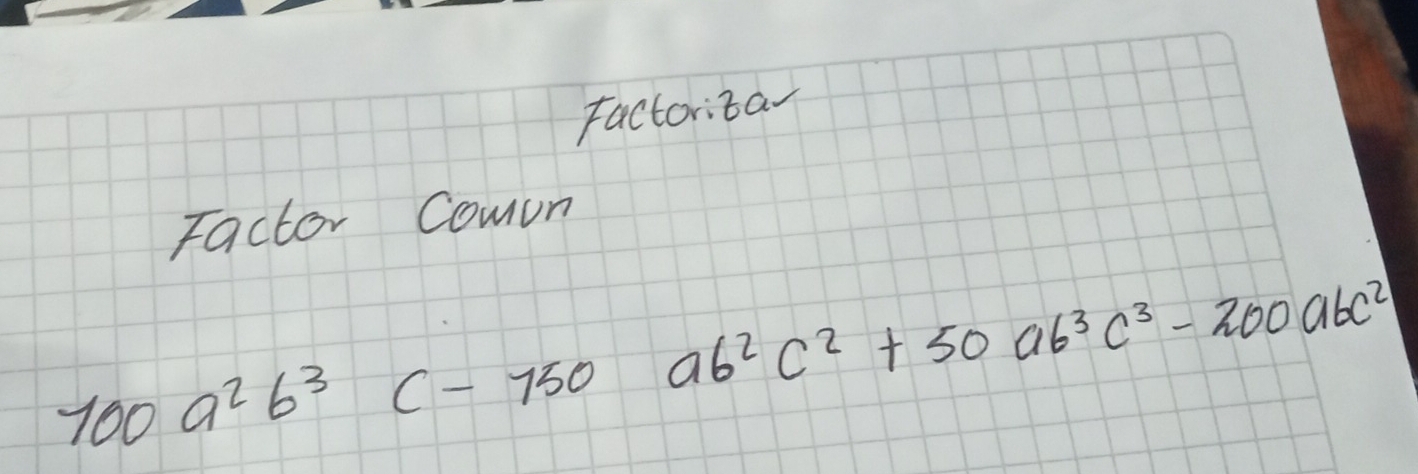 Factorizar
Factor Comun
100 a² b³ c - 150 ab² c² + 50 ab³ c³ - 200 abc²